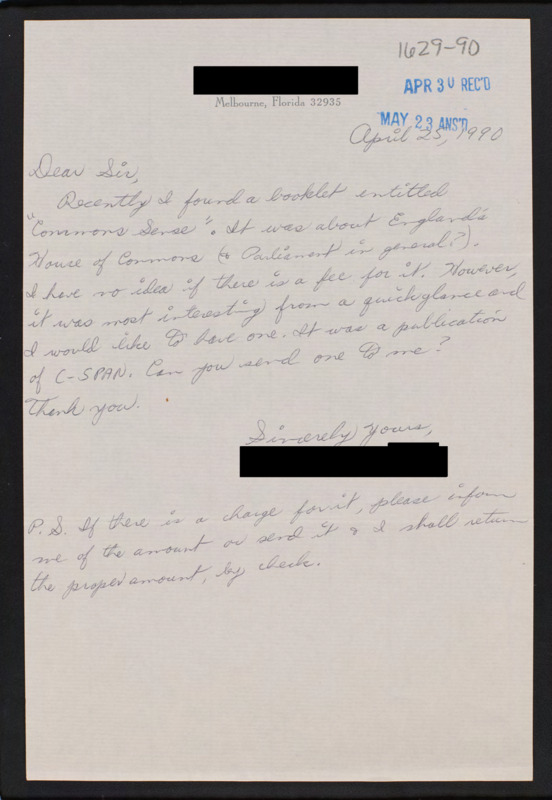 1629-90
APR 30 REC'D
Melbourne, Florida 32935
MAY 23 ANS'D
April 25, 1990
Dear Sir,
Recently I found a booklet entitled
"Commons Sense". It was about England's
House of Commons (& Parliament in general?).
I have no idea if there is a fee for it. However,
it was most interesting from a quick glance and
I would like to have one. It was a publication
of C-SPAN. Can you send one to me?
Thank you.
Sincerely Yours,
P.S. If there is a charge for it, please inform
me of the amount or send it & I shall return
the proper amount, by check.